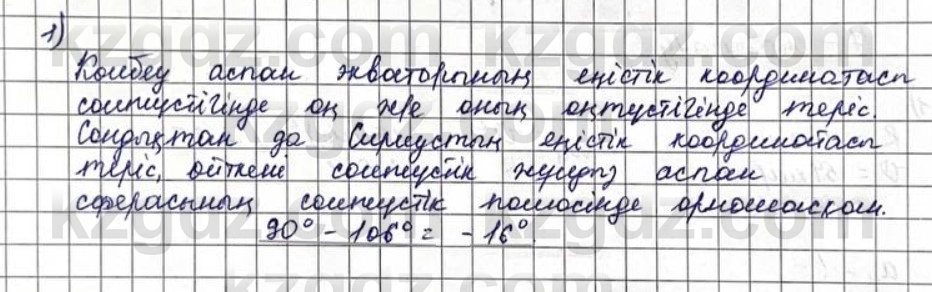 1)
Көлбеу аспан экваторының еңістік координатасы
солтүстігінде оң және оның оңтүстігінде теріс.
Сондықтан да Сириустың еңістік координатасы
теріс, өйткені солтүстік жұлдыз аспан
сферасының солтүстік полюсінде орналасқан.
90° - 106° = - 16°.